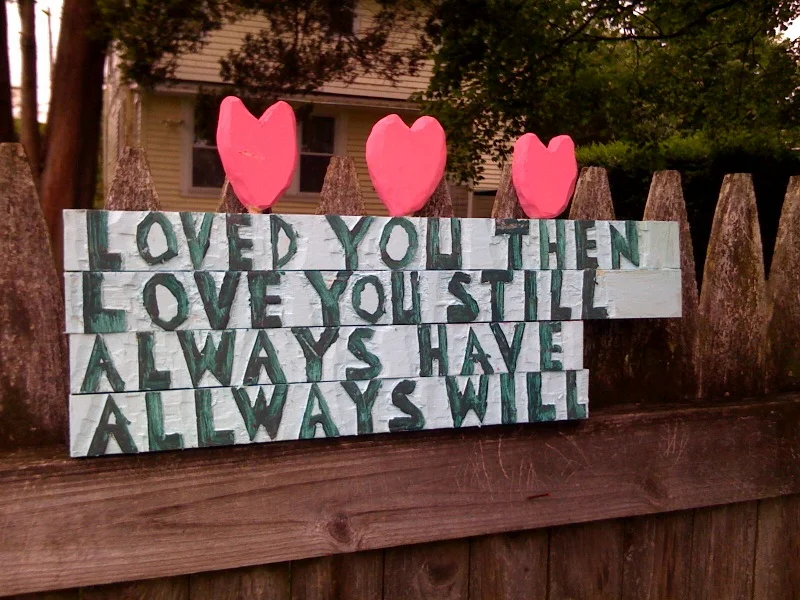 LOVED YOU THEN
LOVE YOU STILL
ALWAYS HAVE
ALLWAYS WILL